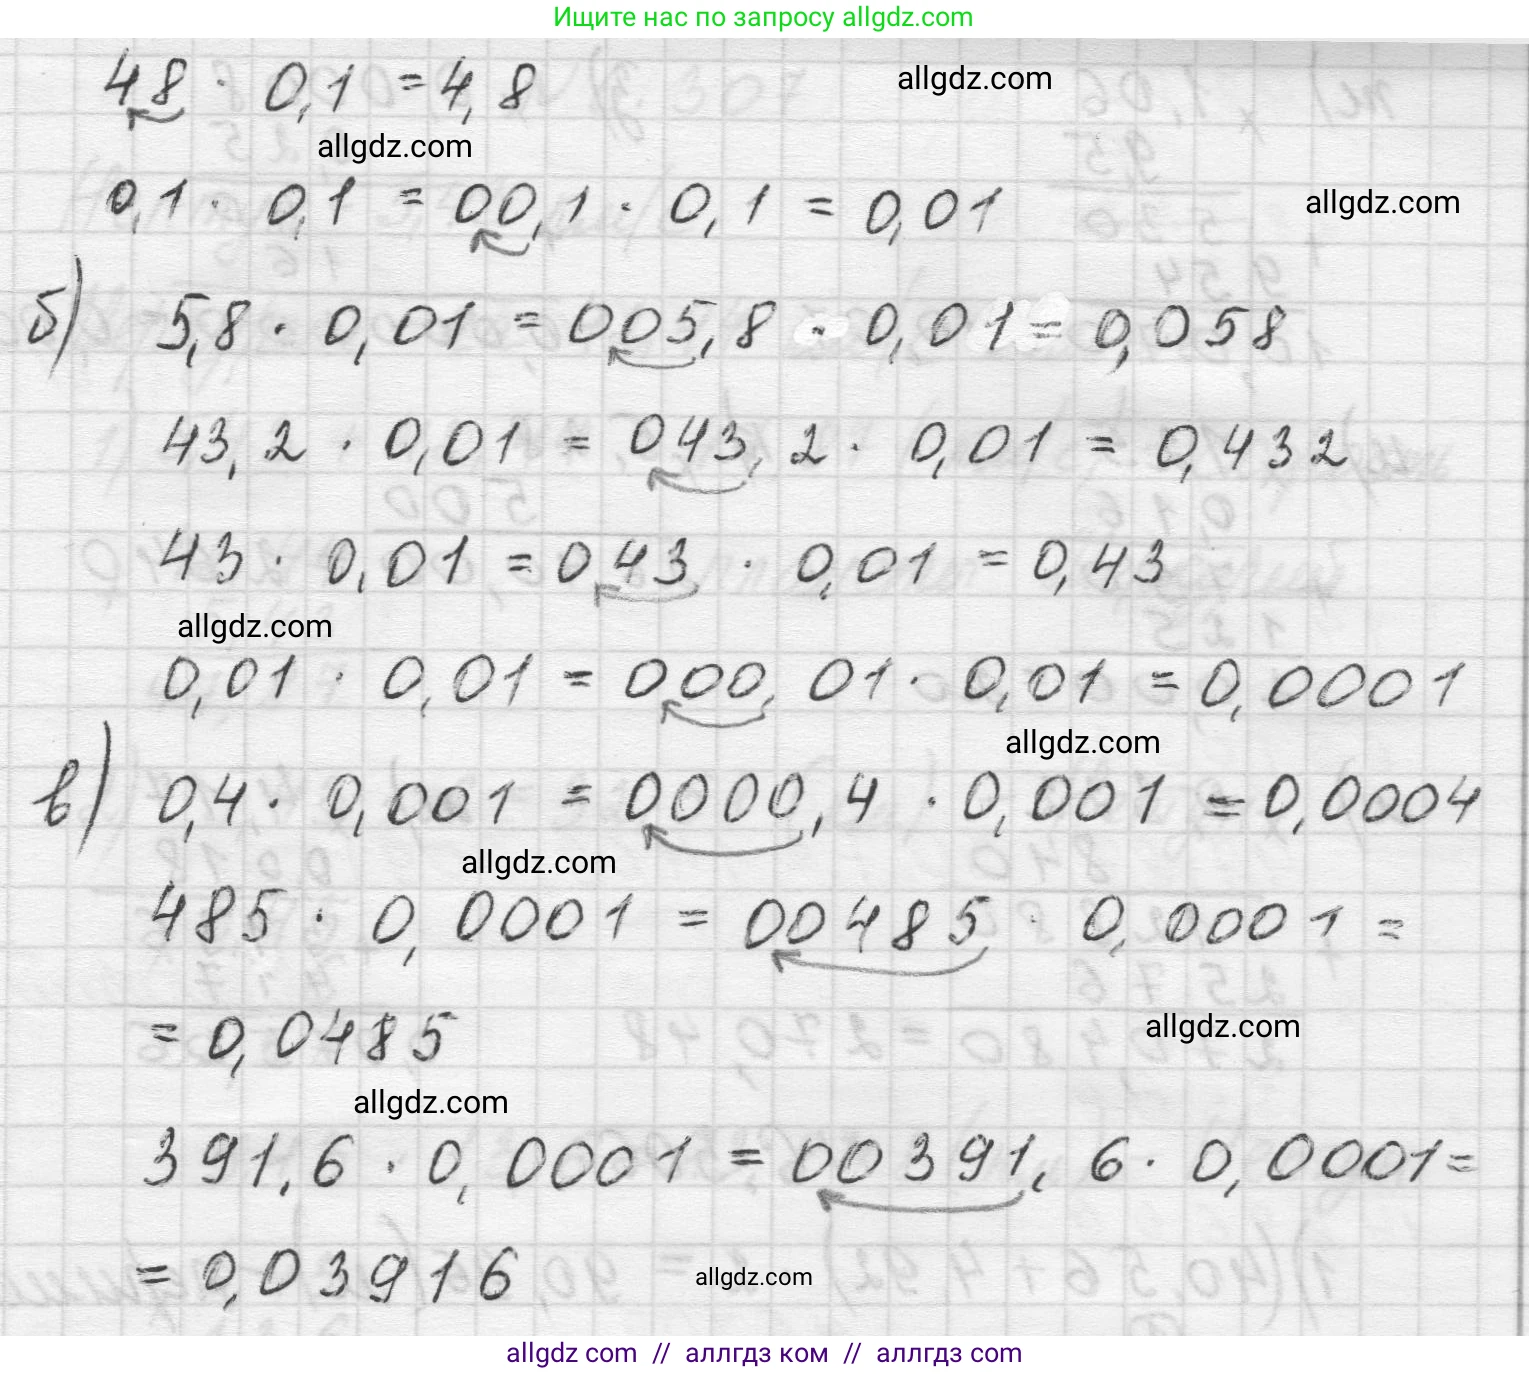 Ищите нас по запросу allgdz.com
48 · 0,1 = 4,8
allgdz.com
allgdz.com
0,1 · 0,1 = 00,1 · 0,1 = 0,01
allgdz.com
б) 5,8 · 0,01 = 005,8 · 0,01 = 0,058
43,2 · 0,01 = 043,2 · 0,01 = 0,432
43 · 0,01 = 043 · 0,01 = 0,43
allgdz.com
0,01 · 0,01 = 000,01 · 0,01 = 0,0001
allgdz.com
в) 0,4 · 0,001 = 0000,4 · 0,001 = 0,0004
allgdz.com
485 · 0,0001 = 00485 · 0,0001 =
= 0,0485
allgdz.com
allgdz.com
391,6 · 0,0001 = 00391,6 · 0,0001 =
= 0,03916
allgdz.com
allgdz com // аллгдз ком // аллгдз com